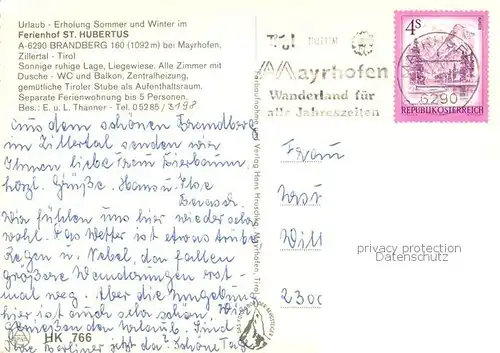 Urlaub - Erholung Sommer und Winter im
Ferienhof ST. HUBERTUS
A-6290 BRANDBERG 160 (1092 m) bei Mayrhofen,
Zillertal - Tirol
Sonnige ruhige Lage, Liegewiese. Alle Zimmer mit
Dusche - WC und Balkon, Zentralheizung,
gemütliche Tiroler Stube als Aufenthaltsraum.
Separate Ferienwohnung bis 5 Personen.
Bes.: E. u. L. Thanner - Tel. 05285/3198
Aus dem schönen Brandberg
im Zillertal senden wir
Ihnen liebe Frau Bierbaum,
herzl. Grüße. Hans u. Ilse
Wir fühlen uns hier wieder sehr
wohl. Das Wetter ist etwas trübe
Regen u. Nebel, da fallen
größere Wanderungen erst-
mal weg. Aber die Umgebung
hier ist auch sehr schön. Wir
genießen den Urlaub. Sind
Ihre Berliner jetzt da? Schöne Tage
HK 766
Farbaufnahme und Verlag Hans Hruschka, Mayrhofen, Tirol
ZILLERTAL
Mayrhofen
Wanderland für
alle Jahreszeiten
4S
6290
REPUBLIK ÖSTERREICH
Frau
2300
privacy protection
Datenschutz